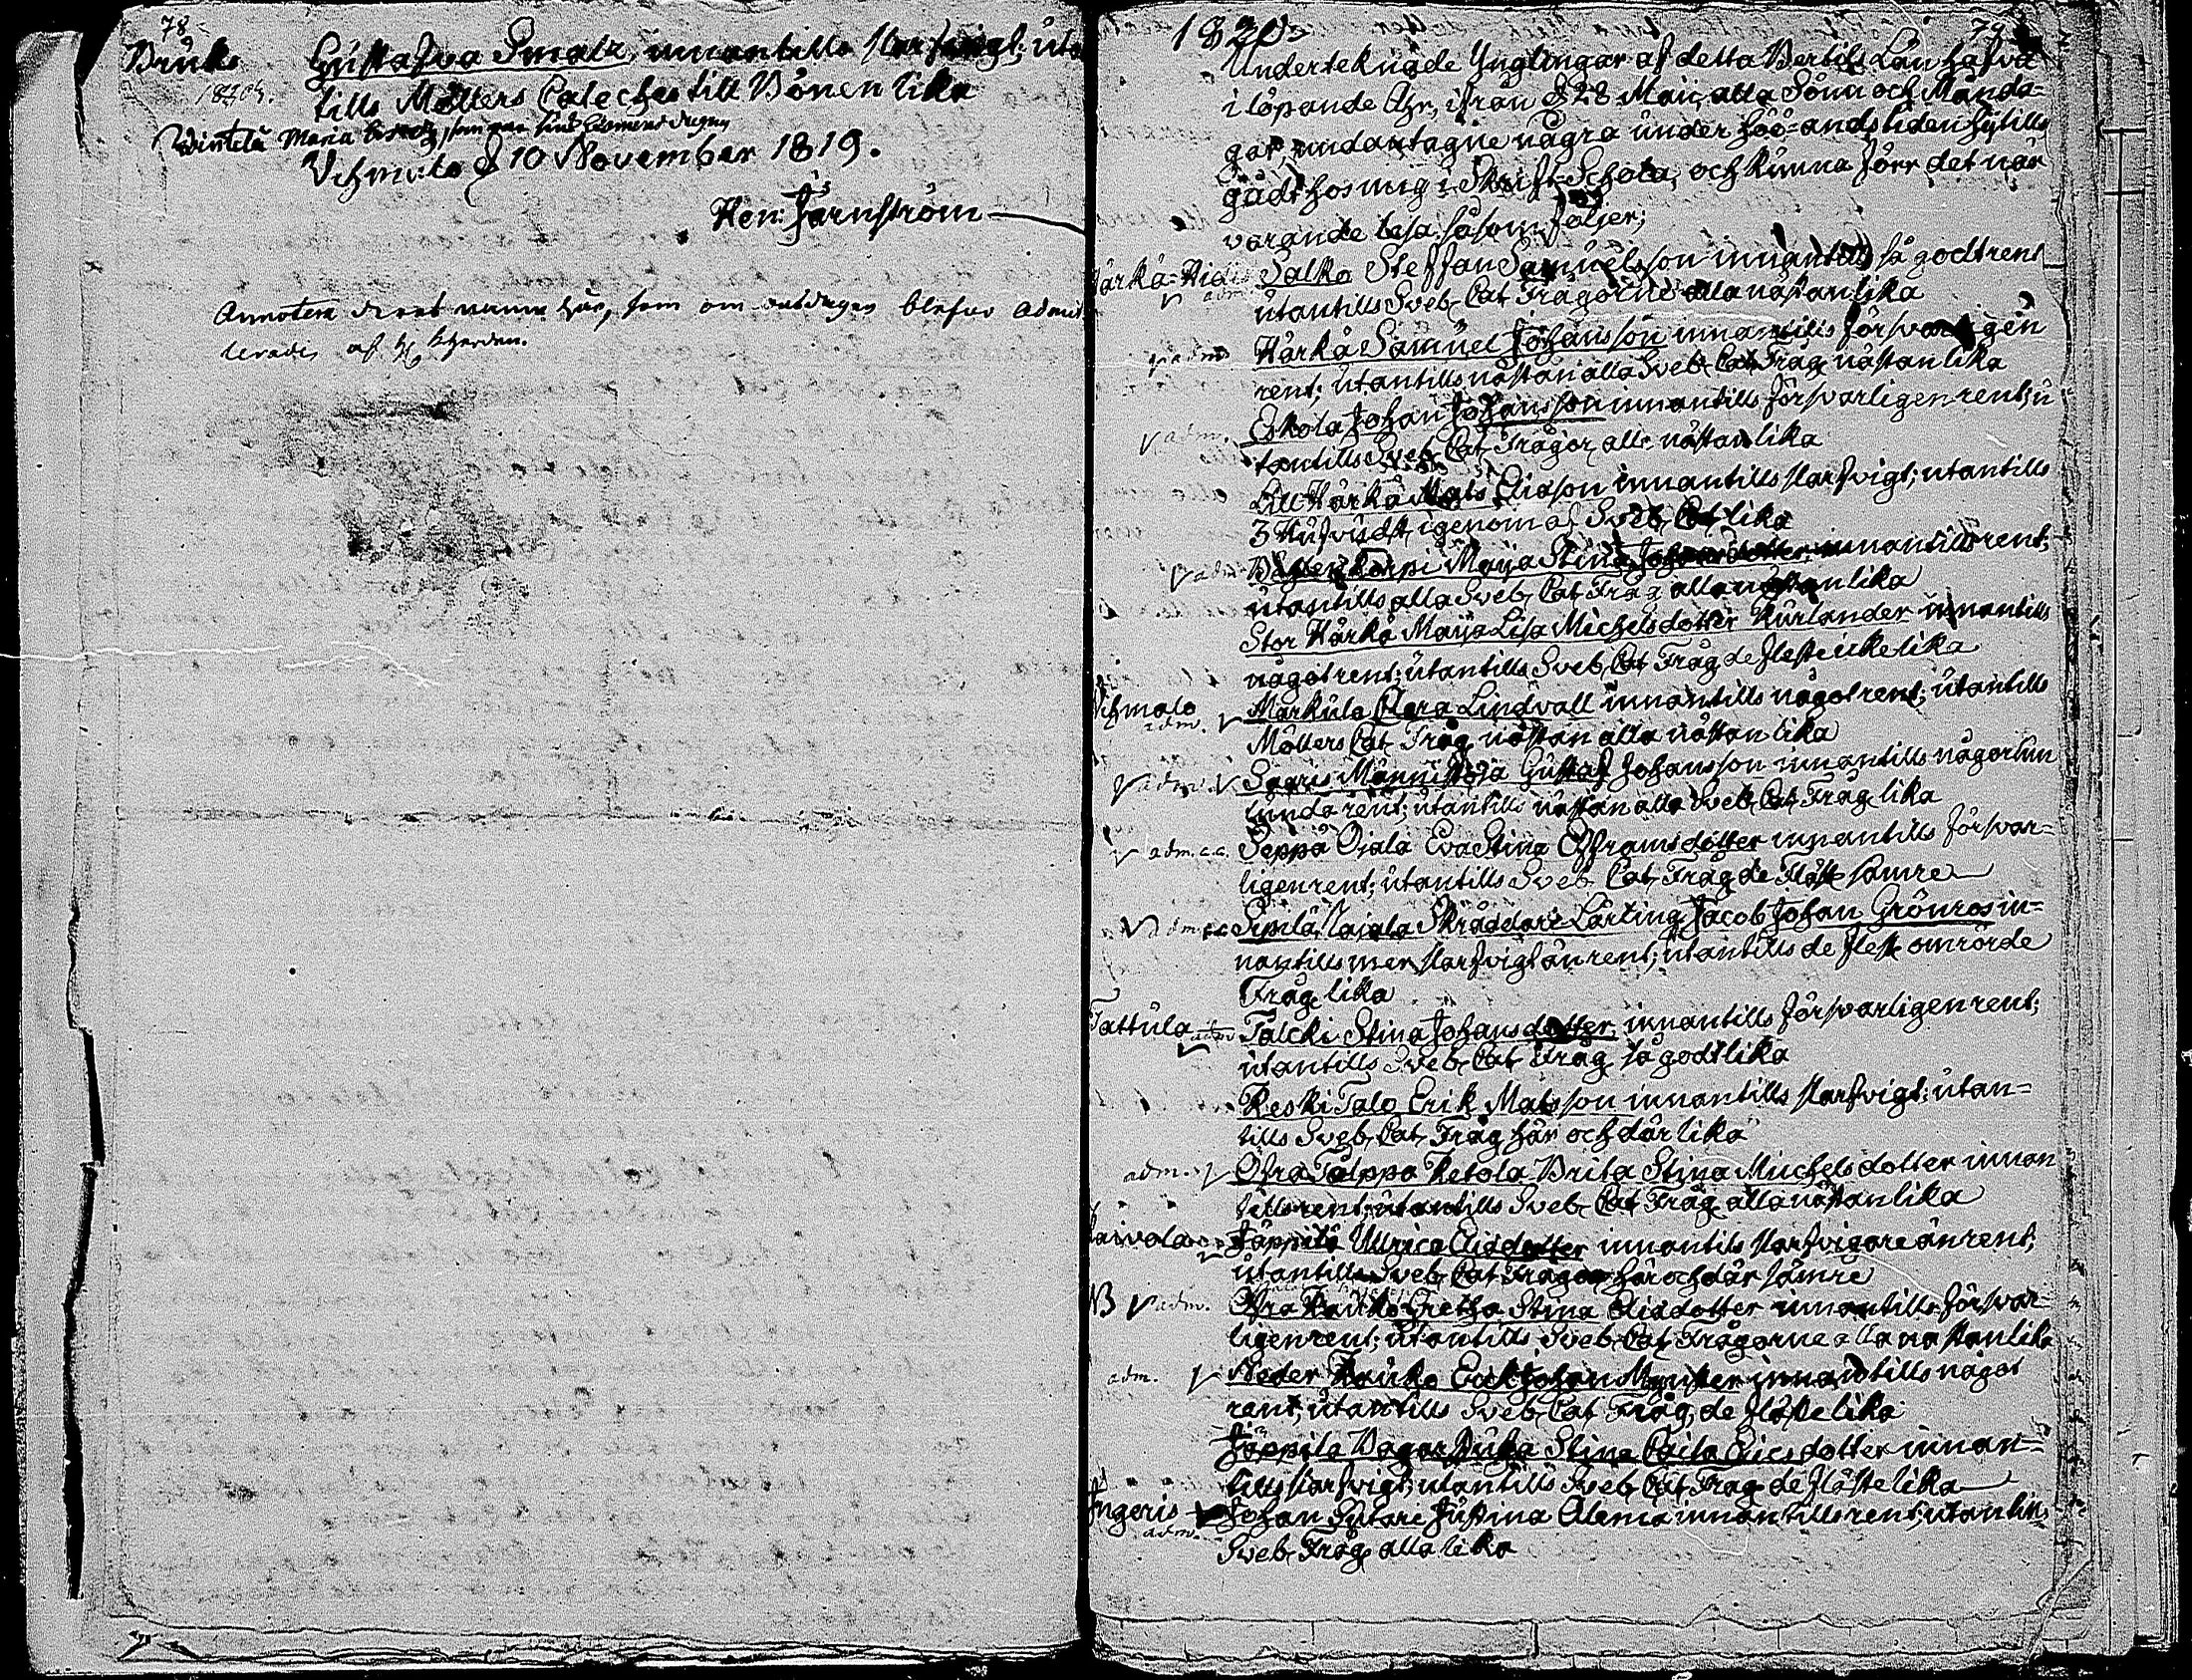 78
Bruks Gustafva Smalz, innantills starfvigt; uta
tills Möllers Cateches till Bönen lika
Maria
Vehmais d 10 November 1819.
Hen: Järnström
Annotera deras namn här, som om
af
1820
79
Underteknade Ynglingar af detta Bertils Län hafva
i löpande Åhr, ifrån d 28 Maii, alla Sönn och Månda-
gar, undantagne några under höö-ands tiden hytills
gådt hos mig i Skrift-Schola, och kunna förr det när
varande läsa såsom följer;
Salko Steffan Samuelsson innantills så godt rent
utantills Sveb. Cat. Frågorne alla nästan lika
adm. Härkä Samuel Johansson innantills försvarligen
rent; utantills nästan alla Sveb. Cat. Fråg. nästan lika
adm. Eskola Johan Johansson innantills försvarligen rent; u
tantills Sveb. Cat. Frågor alla nästan lika
Lill Härkä Mats Eliasson innantills starfvigt; utantills
3 Hufvudst. igenom af Sveb. Cat. lika
adm. Maija Stina Johansdotter innantills rent;
utantills alla Sveb. Cat. Fråg. alla nästan lika
Stor Härkä Maija Lisa Michelsdotter Kurlander innantills
något rent; utantills Sveb. Cat. Fråg. de fleste icke lika
Vehmais adm. Markula Clara Lindvall innantills något rent; utantills
Möllers Cat. Fråg. nästan alla nästan lika
adm. Sagris Männistöjä Gustaf Johansson innantills någorlun
lunda rent; utantills nästan alla Sveb. Cat. Fråg. lika
adm. c.c. Seppä Ojala Eva Stina Effraimsdotter innantills försvar-
ligen rent; utantills Sveb. Cat. Fråg. de fläste sämre
adm. Sipilä, Najala Skräddare Lärling Jacob Johan Grönros in-
nantills mer starfvigt än rent; utantills de fleste omrörde
Fråg. lika
Tattula adm. Talcki Stina Johansdotter, innantills försvarligen rent;
utantills Sveb. Cat. Fråg. så godt lika
Keski Talo Erik Matsson innantills starfvigt; utan-
tills Sveb. Cat. Fråg. här och där lika
adm. Öfra Talppo Ketola Brita Stina Michelsdotter innan
tills rent; utantills Sveb. Cat. Fråg. alla nästan lika
Jäppilä Ullrica Eliadotter innantils starfvigare än rent;
utantills Sveb. Cat. Frågor här och där sämre
NB adm. Öfra Kauko Gretha Stina Eliadotter innantills försvar-
ligen rent; utantills Sveb. Cat. Frågorne alla nästan lika
adm. Neder Kauko Eric Johan Munster innantills något
rent; utantills Sveb. Cat. Fråg. de fläste lika
Jäppilä Stina Caisa Ericsdotter innan-
tills starfvigt; utantills Sveb. Cat. Fråg. de fläste lika
Ingeris adm. Johan Sutari Justina Alenia innantills rent; utantills
Sveb. Fråg. alla lika